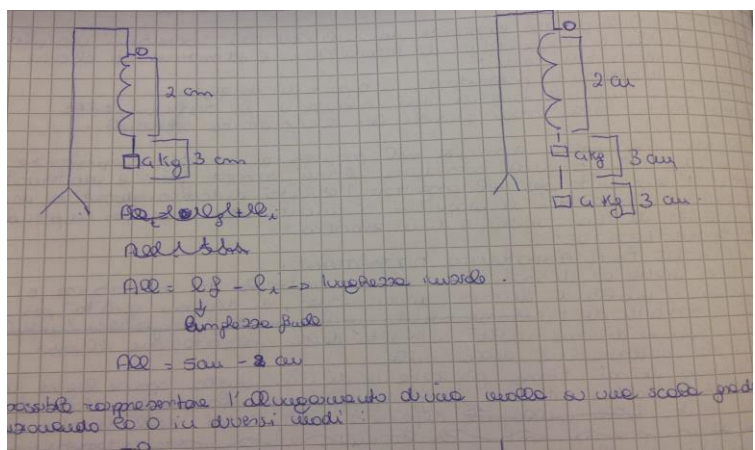 0
2 cm
4 kg 3 cm
0
2 cm
4 kg 3 cm
4 kg 3 cm
All = lf - li → lunghezza iniziale.
lunghezza finale
All = 5cm - 2 cm
possibile rappresentare l'allungamento di una molla su una scala grad
ponendo lo 0 in diversi modi: